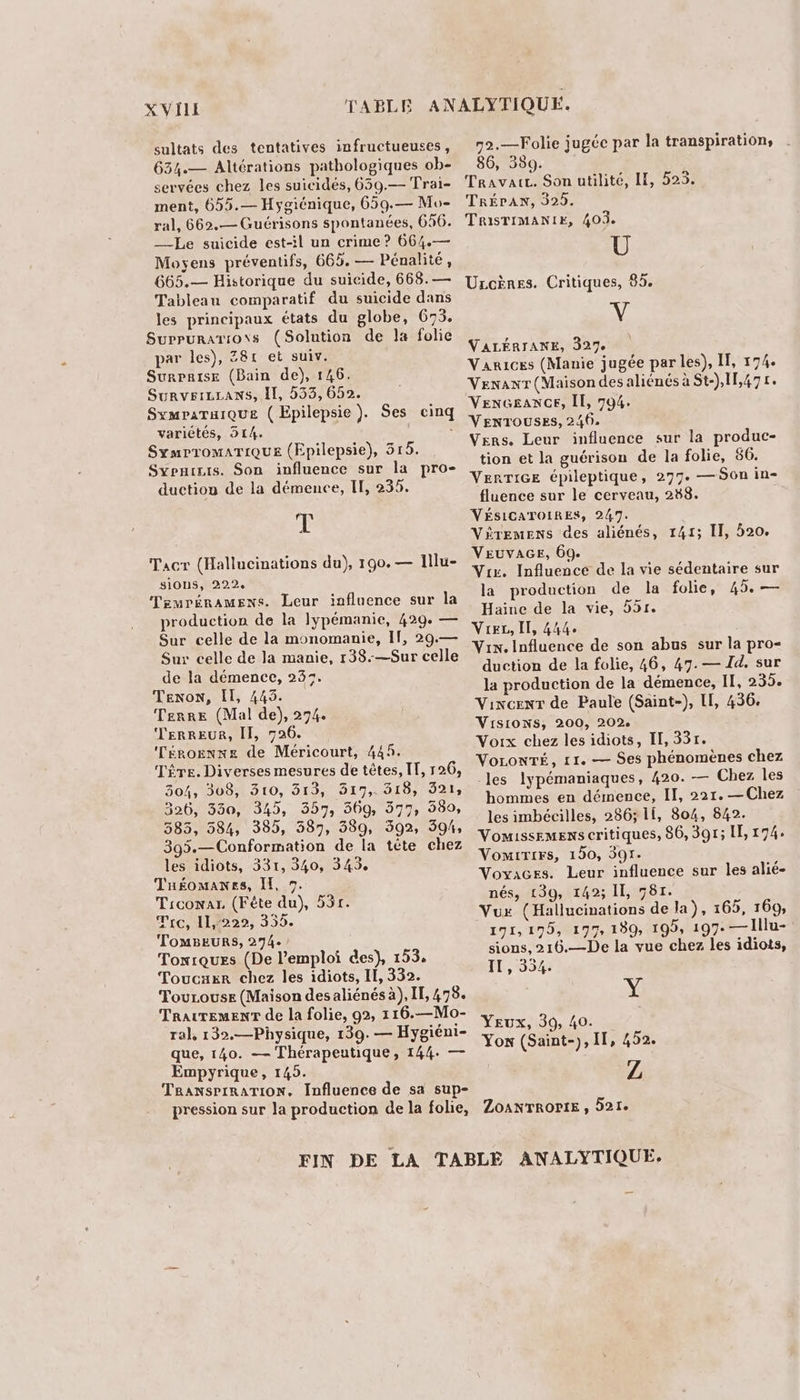 XVIII TABLE ANALYTIQUE.
sultats des tentatives infructueuses,
634.— Altérations pathologiques ob-
servées chez les suicidés, 639.— Trai-
ment, 655.— Hygiénique, 659.— Mo-
ral, 662.— Guérisons spontanées, 656.
—Le suicide est-il un crime? 664.—
Moyens préventifs, 665. — Pénalité,
665.— Historique du suicide, 668.—
Tableau comparatif du suicide dans
les principaux états du globe, 673.
SUPPURATIONS (Solution de la folie
par les), 381 et suiv.
SURPRISE (Bain de), 146.
SURVEILLANS, II, 533, 652.
SYMPATHIQUE ( Epilepsie ). Ses cinq
variétés, 314.
SYMPTOMATIQUE (Epilepsie), 315.
SYPHILIS. Son influence sur la pro-
duction de la démence, II, 235.
T
TACT (Hallucinations du), 190. — Illu-
sions, 222.
TEMPÉRAMENS. Leur influence sur la
production de la lypémanie, 429. —
Sur celle de la monomanie, II, 29.—
Sur celle de la manie, 138.—Sur celle
de la démence, 237.
TENON, II, 443.
TERRE (Mal de), 274.
TERREUR, II, 726.
TÉROENNE de Méricourt, 445.
TÊTE. Diverses mesures de têtes, II, 126,
304, 308, 310, 313, 317, 318, 321,
326, 330, 345, 357, 369, 377, 380,
383, 384, 385, 387, 389, 392, 394,
395.—Conformation de la tête chez
les idiots, 331, 340, 343.
THÉOMANES, II, 7.
TICONAL (Fête du), 531.
TIC, II, 222, 335.
TOMBEURS, 274.
TONIQUES (De l'emploi des), 153.
TOUCHER chez les idiots, II, 332.
TOULOUSE (Maison des aliénés à), II, 478.
TRAITEMENT de la folie, 92, 116.—Mo-
ral, 132.—Physique, 139. — Hygiéni-
que, 140. — Thérapeutique, 144. —
Empyrique, 145.
TRANSPIRATION. Influence de sa sup-
pression sur la production de la folie,
72.—Folie jugée par la transpiration,
86, 389.
TRAVAIL. Son utilité, II, 523.
TRÉPAN, 325.
TRISTIMANIE, 403.
U
ULCÈRES. Critiques, 85.
V
VALÉRIANE, 327.
VARICES (Manie jugée par les), II, 174.
VENANT (Maison des aliénés à St-), II, 471.
VENGEANCE, II, 794.
VENTOUSES, 246.
VERS. Leur influence sur la produc-
tion et la guérison de la folie, 86.
VERTIGE épileptique, 277. — Son in-
fluence sur le cerveau, 288.
VÉSICATOIRES, 247.
VÊTEMENS des aliénés, 141; II, 520.
VEUVAGE, 69.
VIE. Influence de la vie sédentaire sur
la production de la folie, 45. —
Haine de la vie, 551.
VIEL, II, 444.
VIN. Influence de son abus sur la pro-
duction de la folie, 46, 47. — Id. sur
la production de la démence, II, 235.
VINCENT de Paule (Saint-), II, 436.
VISIONS, 200, 202.
VOIX chez les idiots, II, 331.
VOLONTÉ, 11. — Ses phénomènes chez
les lypémaniaques, 420. — Chez les
hommes en démence, II, 221.—Chez
les imbécilles, 286; II, 804, 842.
VOMISSEMENS critiques, 86, 391; II, 174.
VOMITIFS, 150, 391.
VOYAGES. Leur influence sur les alié-
nés, 139, 142; II, 781.
VUE (Hallucinations de la), 165, 169,
171, 175, 177, 189, 195, 197.—Illu-
sions, 216.—De la vue chez les idiots,
II, 334.
Y
YEUX, 39, 40.
YON (Saint-), II, 452.
Z
ZOANTROPIE, 521.
FIN DE LA TABLE ANALYTIQUE.